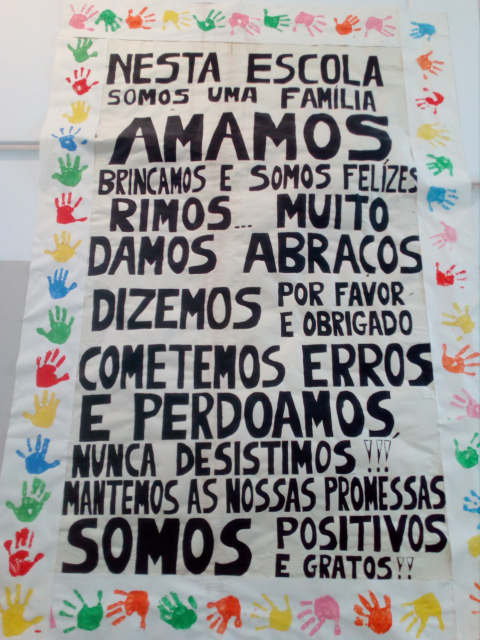 NESTA ESCOLA
SOMOS UMA FAMÍLIA
AMAMOS
BRINCAMOS E SOMOS FELÍZES
RIMOS... MUITO
DAMOS ABRAÇOS
DIZEMOS POR FAVOR
E OBRIGADO
COMETEMOS ERROS
E PERDOAMOS,
NUNCA DESISTIMOS!!!
MANTEMOS AS NOSSAS PROMESSAS
SOMOS POSITIVOS
E GRATOS!!